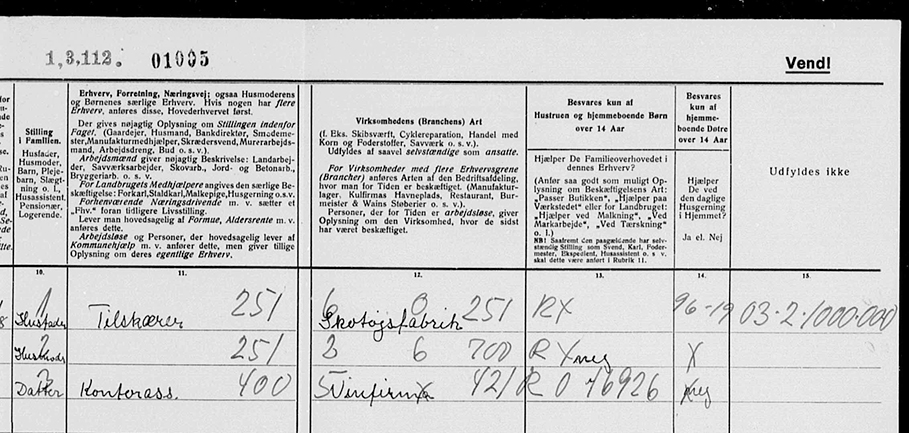 1,3,112. 01005
Vend!
Stilling
i Familien.
Husfader,
Husmoder,
Barn, Pleje-
barn, Slægt-
ning o. l.,
Husassistent,
Pensionær,
Logerende.
Erhverv, Forretning, Næringsvej; ogsaa Husmoderens
og Børnenes særlige Erhverv. Hvis nogen har flere
Erhverv, anføres disse, Hovederhvervet først.
Der gives nøjagtig Oplysning om Stillingen indenfor
Faget. (Gaardejer, Husmand, Bankdirektør, Smedeme-
ster, Manufakturmedhjælper, Skrædersvend, Murerarbejds-
mand, Arbejdsdreng, Bud o. s. v.).
Arbejdsmænd giver nøjagtig Beskrivelse: Landarbej-
der, Savværksarbejder, Skovarb., Jord- og Betonarb.,
Bryggeriarb. o. s. v.
For Landbrugets Medhjælpere angives den særlige Be-
skæftigelse: Forkarl, Staldkarl, Malkepige, Husgerning o.s.v.
Forhenværende Næringsdrivende m. v. sætter et
„Fhv.“ foran tidligere Livsstilling.
Lever man hovedsagelig af Formue, Aldersrente m. v.
anføres dette.
Arbejdsløse og Personer, der hovedsagelig lever af
Kommunehjælp m. v. anfører dette, men giver tillige
Oplysning om deres egentlige Erhverv.
Virksomhedens (Branchens) Art
(f. Eks. Skibsværft, Cyklereparation, Handel med
Korn og Foderstoffer, Savværk o. s. v.).
Udfyldes af saavel selvstændige som ansatte.
For Virksomheder med flere Erhvervsgrene
(Brancher) anføres Arten af den Bedriftsafdeling,
hvor man for Tiden er beskæftiget. (Manufaktur-
lager, Kulfirmas Havneplads, Restaurant, Bur-
meister & Wains Støberier o. s. v.).
Personer, der for Tiden er arbejdsløse, giver
Oplysning om den Virksomhed, hvor de sidst
har været beskæftiget.
Besvares kun af
Hustruen og hjemmeboende Børn
over 14 Aar
Hjælper De Familieoverhovedet i
dennes Erhverv?
(Anfør saa godt som muligt Op-
lysning om Beskæftigelsens Art:
„Passer Butikken“, „Hjælper paa
Værkstedet“ eller for Landbruget:
„Hjælper ved Malkning“, „Ved
Markarbejde“, „Ved Tærskning“
o. l.)
NB! Saafremt den paagældende har selv-
stændig Stilling som Svend, Karl, Foder-
mester, Ekspedient, Husassistent o. s. v.
skal dette være anført i Rubrik 11.
Besvares
kun af
hjemme-
boende Døtre
over 14 Aar
Hjælper
De ved
den daglige
Husgerning
i Hjemmet?
Ja el. Nej
Udfyldes ikke
10. 11. 12. 13. 14. 15.
1 251 6 0 251 RX 96-19 03-2-1000-000
8 Husfader Tilskærer Skotøjsfabrik
2 251 3 6 700 R X nej X
Husmoder
Datter Kontorass. 400 5 Vinfirma 421 R 0 76926 nej